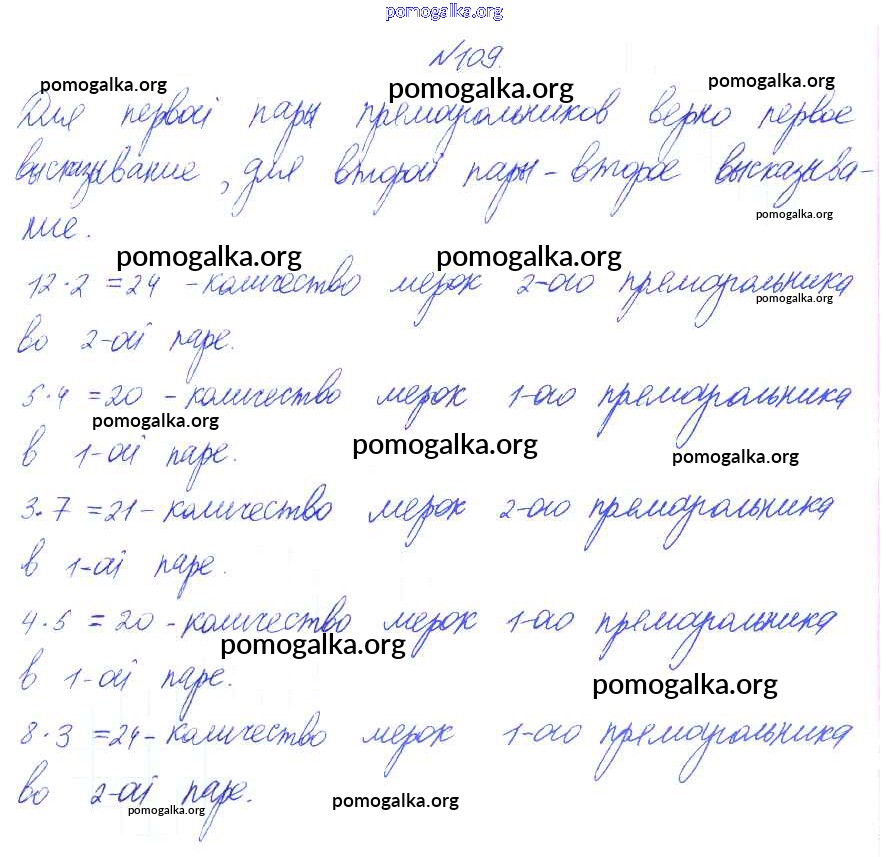 pomogalka.org
№109.
pomogalka.org pomogalka.org pomogalka.org
Для первой пары прямоугольников верно первое
высказывание, для второй пары - второе высказыва-
pomogalka.org
ние.
pomogalka.org pomogalka.org
12·2 = 24 - количество мерок 2-ого прямоугольника
pomogalka.org
во 2-ой паре.
5·4 = 20 - количество мерок 1-ого прямоугольника
pomogalka.org
в 1-ой паре.
pomogalka.org pomogalka.org
3·7 = 21 - количество мерок 2-ого прямоугольника
в 1-ой паре.
4·5 = 20 - количество мерок 1-ого прямоугольника
pomogalka.org
в 1-ой паре.
pomogalka.org
8·3 = 24 - количество мерок 1-ого прямоугольника
во 2-ой паре.
pomogalka.org pomogalka.org